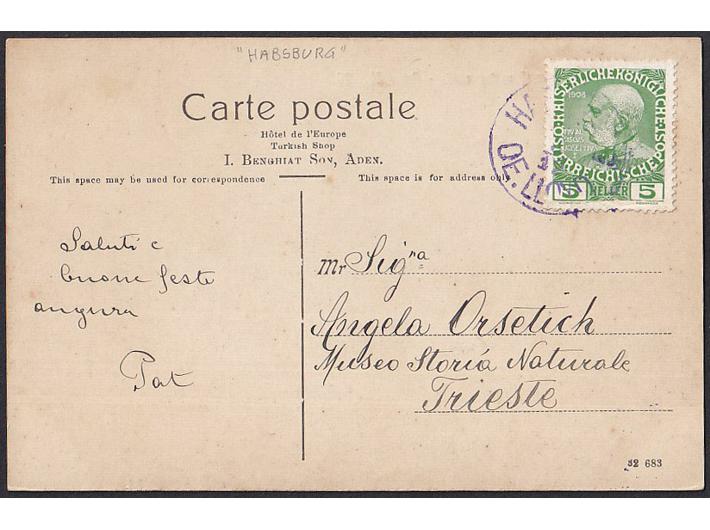 "HABSBURG"
Carte postale
Hôtel de l'Europe
Turkish Shop
I. BENGHIAT SON, ADEN.
This space may be used for correspondence
This space is for address only
HA
OE. LLOY
KAISERLICHE KÖNIGLICHE
ÖSTERREICHISCHE POST
1908
5 HELLER 5
Saluti e
buone feste
augura
Pat
Mr Sigra
Angela Orsetich
Museo Storia Naturale
Trieste
32 683